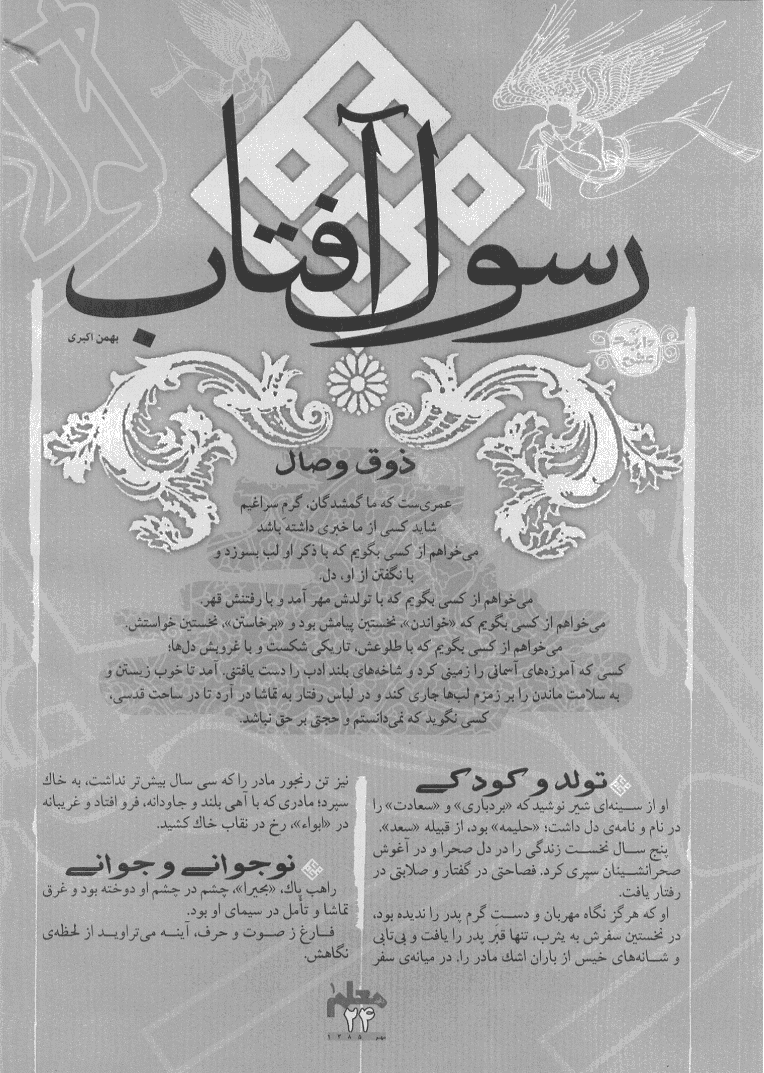 رسول آفتاب
بهمن اکبری
ذوق وصال
عمری‌ست که ما گمشدگان، گرم سراغیم
شاید کسی از ما خبری داشته باشد
می‌خواهم از کسی بگویم که با ذکر او لب بسوزد و
با نگفتن از او، دل.
می‌خواهم از کسی بگویم که با تولدش مهر آمد و با رفتنش قهر.
می‌خواهم از کسی بگویم که «خواندن»، نخستین پیامش بود و «برخاستن»، نخستین خواستش.
می‌خواهم از کسی بگویم که با طلوعش، تاریکی شکست و با غروبش دل‌ها؛
کسی که آموزه‌های آسمانی را زمینی کرد و شاخه‌های بلند ادب را دست یافتنی. آمد تا خوب زیستن و
به سلامت ماندن را بر زمزم لب‌ها جاری کند و در لباس رفتار به تماشا در آرد تا در ساحت قدسی،
کسی نگوید که نمی‌دانستم و حجتی بر حق نباشد.
تولد و کودکی
او از سینه‌ای شیر نوشید که «بردباری» و «سعادت» را
در نام و نامه‌ی دل داشت؛ «حلیمه» بود، از قبیله «سعد».
پنج سال نخست زندگی را در دل صحرا و در آغوش
صحرانشینان سپری کرد. فصاحتی در گفتار و صلابتی در
رفتار یافت.
او که هرگز نگاه مهربان و دست گرم پدر را ندیده بود،
در نخستین سفرش به یثرب، تنها قبر پدر را یافت و بی‌تابی
و شانه‌های خیس از باران اشك مادر را. در میانه‌ی سفر
نیز تن رنجور مادر را که سی سال بیش‌تر نداشت، به خاك
سپرد؛ مادری که با آهی بلند و جاودانه، فرو افتاد و غریبانه
در «ابواء»، رخ در نقاب خاك کشید.
نوجوانی و جوانی
راهب پاك، «بحیرا»، چشم در چشم او دوخته بود و غرق
تماشا و تأمل در سیمای او بود.
فارغ ز صوت و حرف، آینه می‌تراوید از لحظه‌ی
نگاهش.
معلم
۲۴
مهر ۱۳۸۵